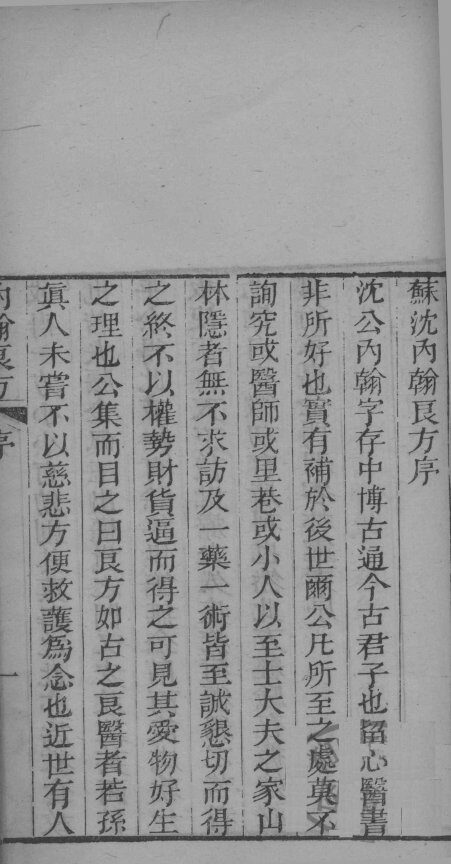 蘇沈內翰良方序
沈公內翰字存中博古通今古君子也留心醫書
非所好也實有補於後世爾公凡所至之處莫不
詢究或醫師或里巷或小人以至士大夫之家山
林隱者無不求訪及一藥一術皆至誠懇切而得
之終不以權勢財貨逼而得之可見其愛物好生
之理也公集而目之曰良方如古之良醫者若孫
眞人未嘗不以慈悲方便救護爲念也近世有人
內翰良方 序 一